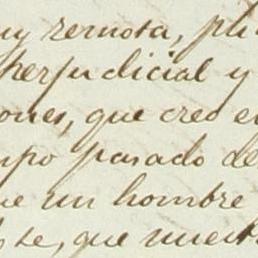 uy remota, pu
perjudicial y
ones, que creo e
mpo pasado de
ue un hombre
se, que nuest